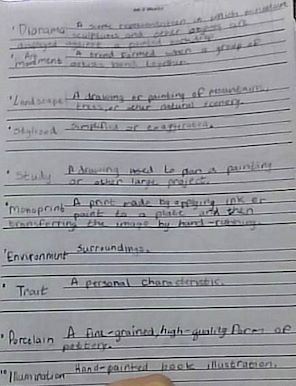 Diorama A scenic representation in which miniature
sculptures and other objects are
displayed against a painted
Art A trend formed when a group of
movement artists band together.
Landscape A drawing or painting of mountains,
trees, or other natural scenery.
Stylized simplified or exaggerated.
Study A drawing used to plan a painting
or other large project.
Monoprint A print made by applying ink or
paint to a plate and then
transferring the image by hand-rubbing.
Environment Surroundings.
Trait A personal characteristic.
Porcelain A fine-grained, high-quality form of
pottery.
Illumination Hand-painted book illustration.